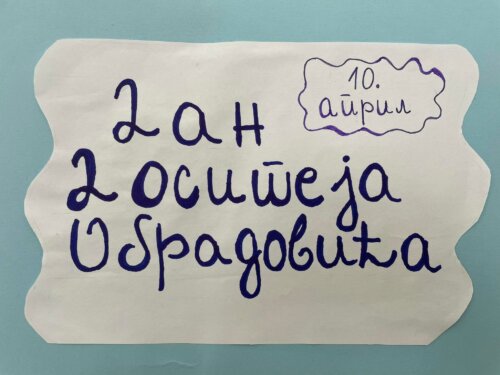 Дан
Доситеја
Обрадовића
10.
април